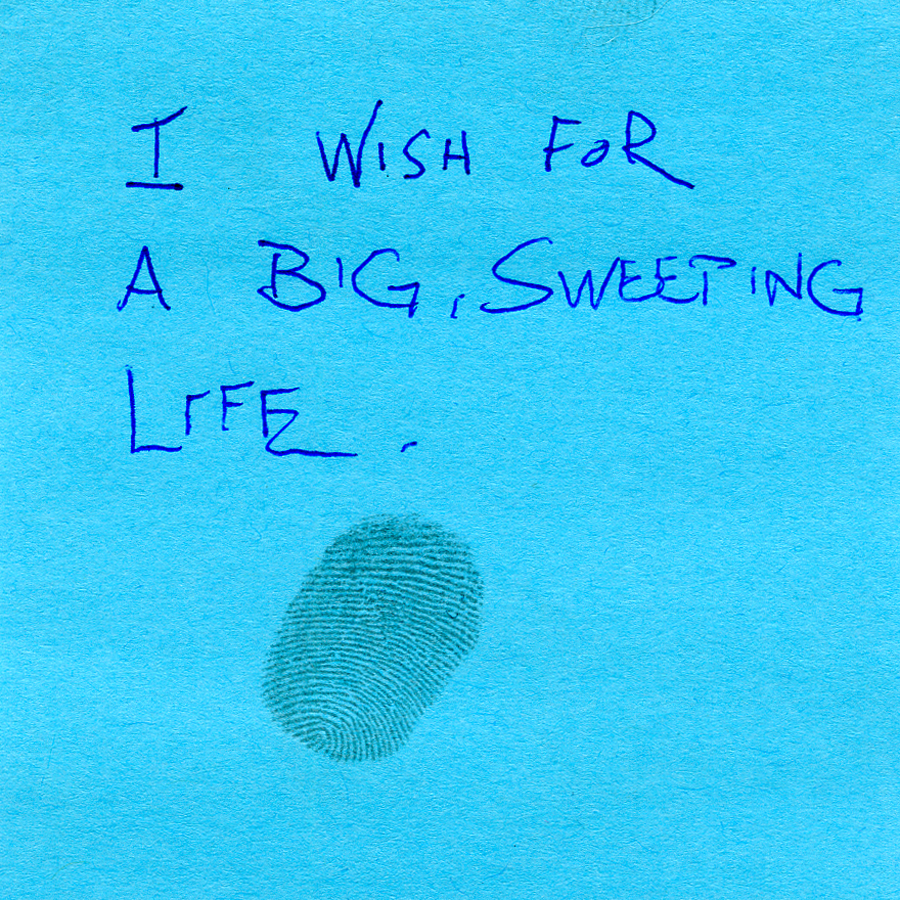 I WISH FOR
A BIG, SWEEPING
LIFE.